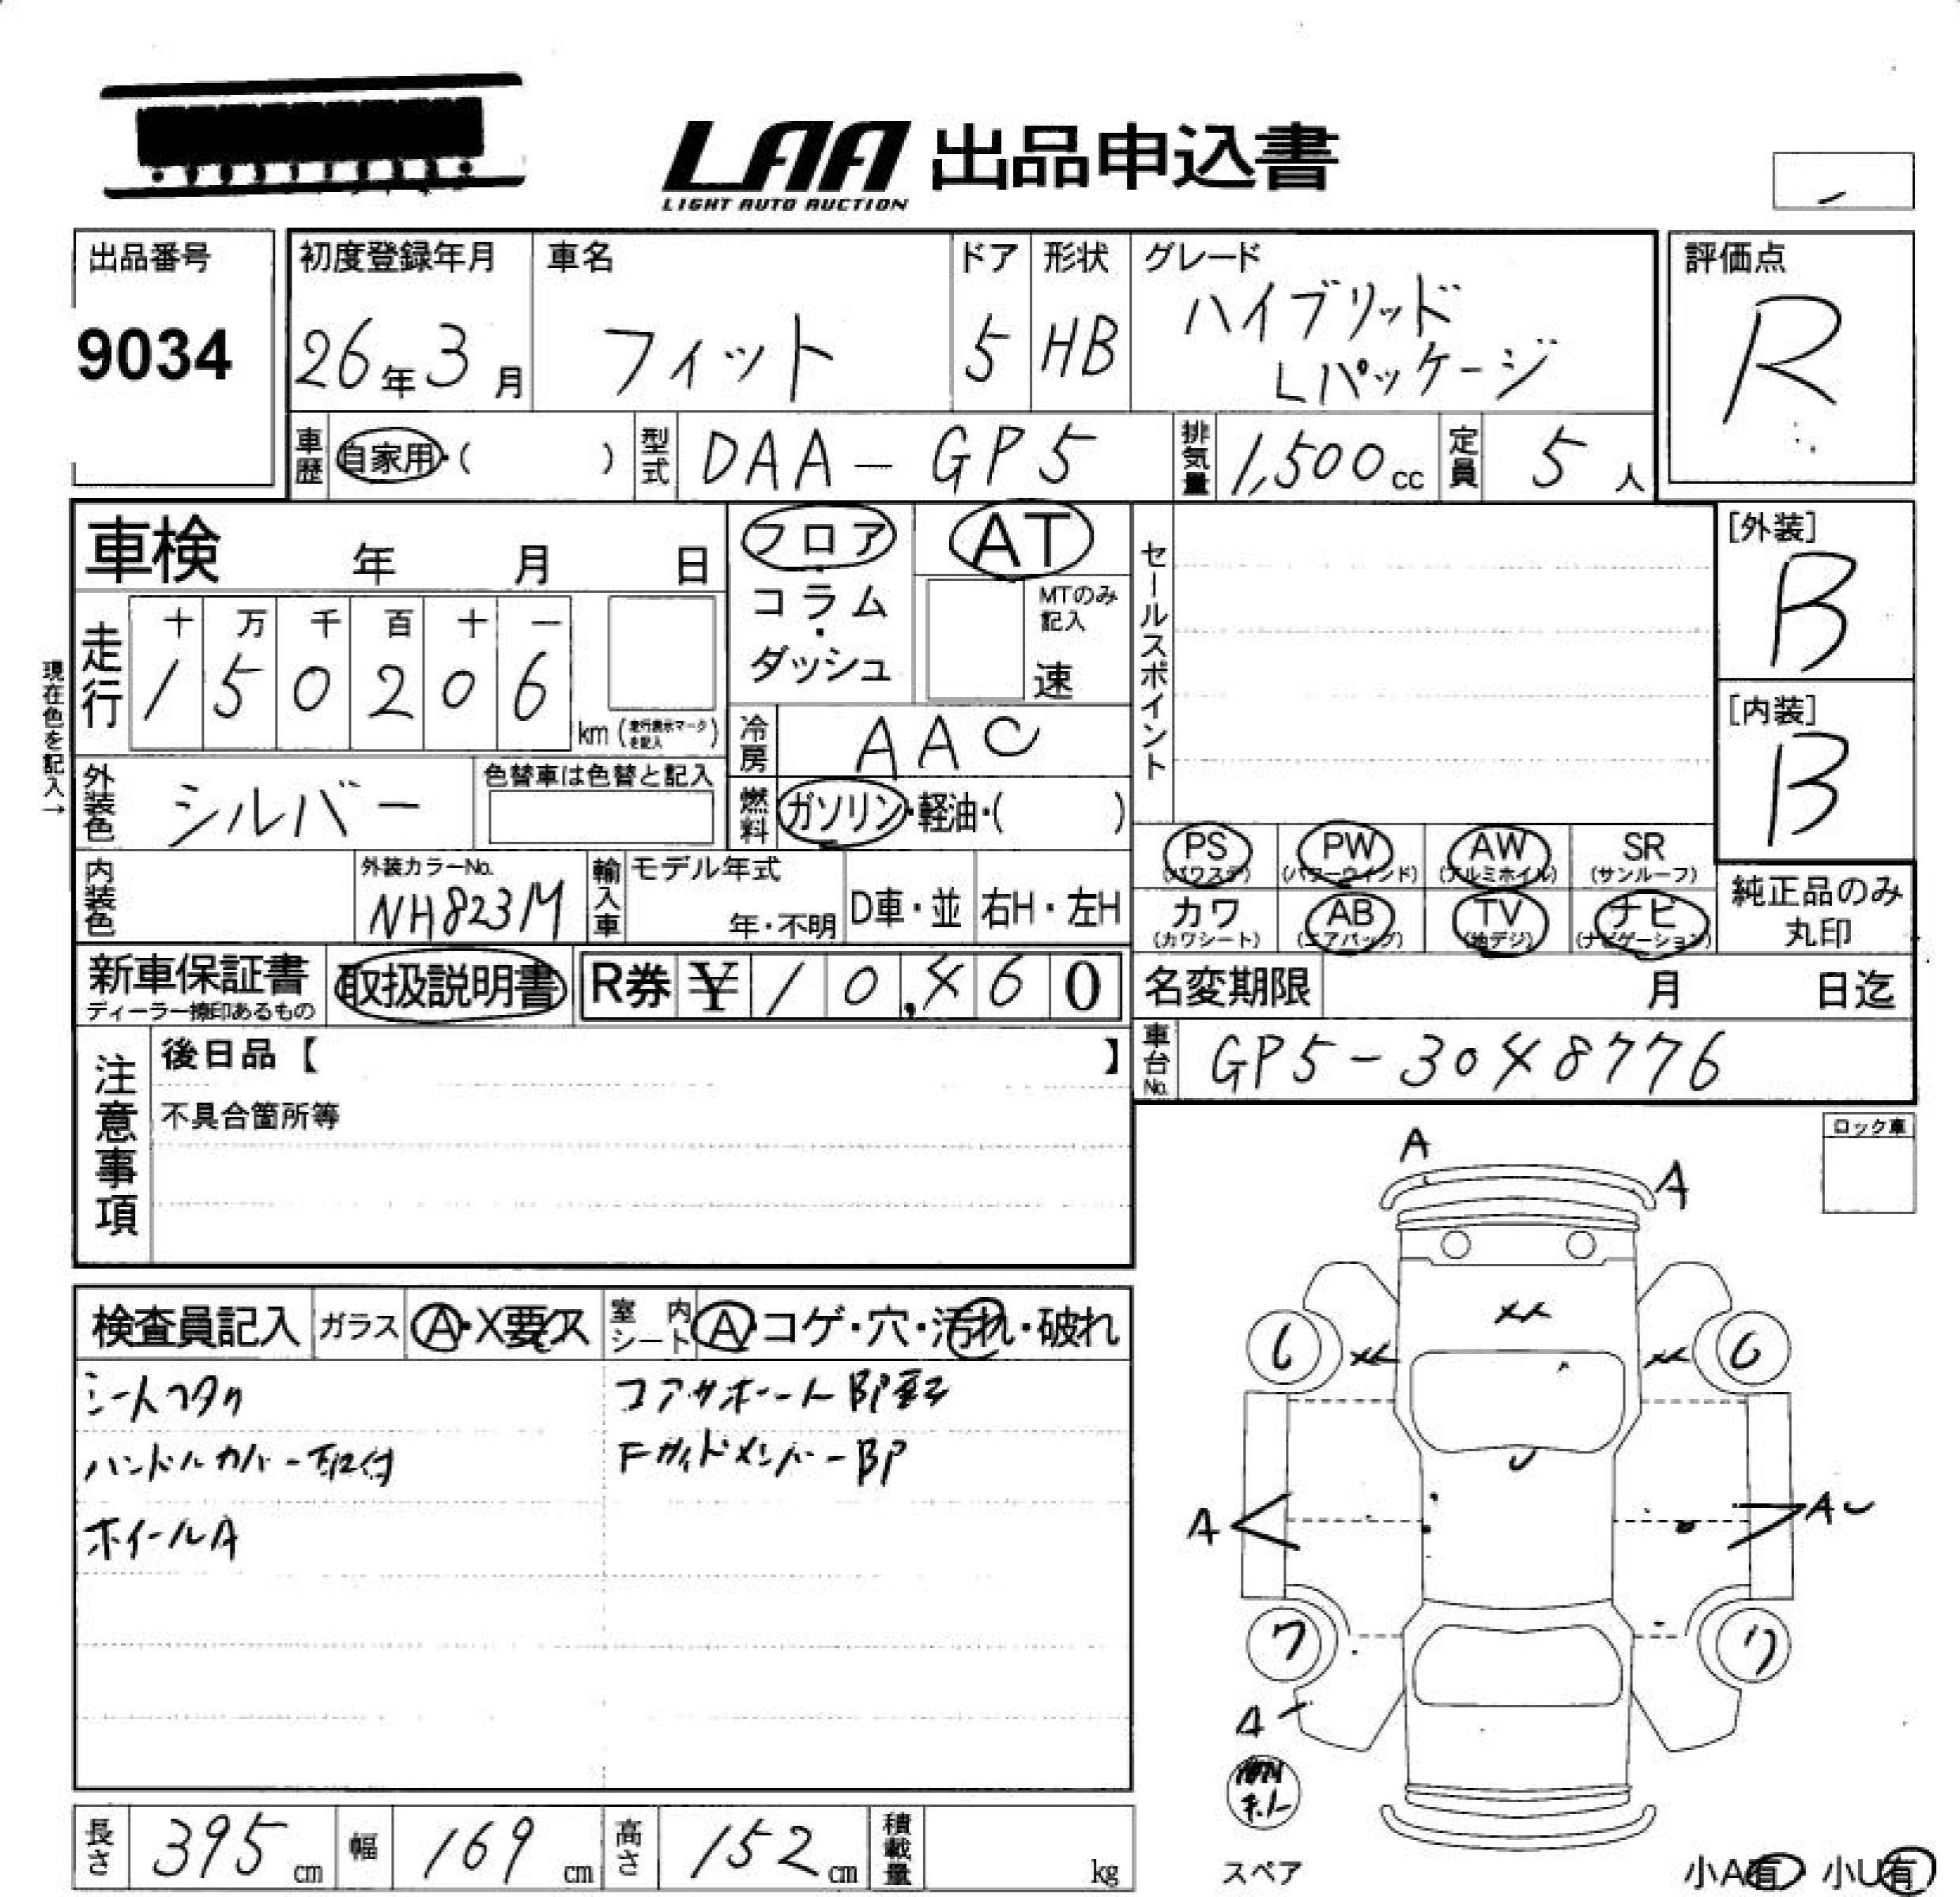 LAA 出品申込書
LIGHT AUTO AUCTION
出品番号
9034
初度登録年月
26年3月
車名
フィット
ドア
5
形状
HB
グレード
ハイブリッド
Lパッケージ
評価点
R
車歴 自家用・( )
型式 DAA-GP5
排気量 1,500cc
定員 5人
車検 年 月 日
フロア・コラム・ダッシュ
AT
MTのみ記入
速
セールスポイント
[外装]
B
[内装]
B
現在色を記入→
走行
十 万 千 百 十 一
1 5 0 2 0 6
km(走行表示マークを記入)
冷房 AAC
外装色 シルバー
色替車は色替と記入
燃料 ガソリン・軽油・( )
PS(パワステ) PW(パワーウインド) AW(アルミホイル) SR(サンルーフ)
カワ(カワシート) AB(エアバッグ) TV(地デジ) ナビ(ナビゲーション)
純正品のみ丸印
内装色
外装カラーNo.
NH823M
輸入車
モデル年式
年・不明
D車・並
右H・左H
新車保証書
ディーラー捺印あるもの
取扱説明書
R券 ¥ 10,460
名変期限 月 日迄
車台No. GP5-3048776
注意事項
後日品【 】
不具合箇所等
ロック車
検査員記入 ガラス A・X要ス 室内シート A・コゲ・穴・汚れ・破れ
シートコタク
コアサポートBP歪
ハンドルカバー取付
FサイドメンバーBP
ホイールA
A
A
XX
6 XX XX 6
U
A
AU
7
7
A
スペア
長さ 395cm
幅 169cm
高さ 152cm
積載量 kg
小A有 小U有